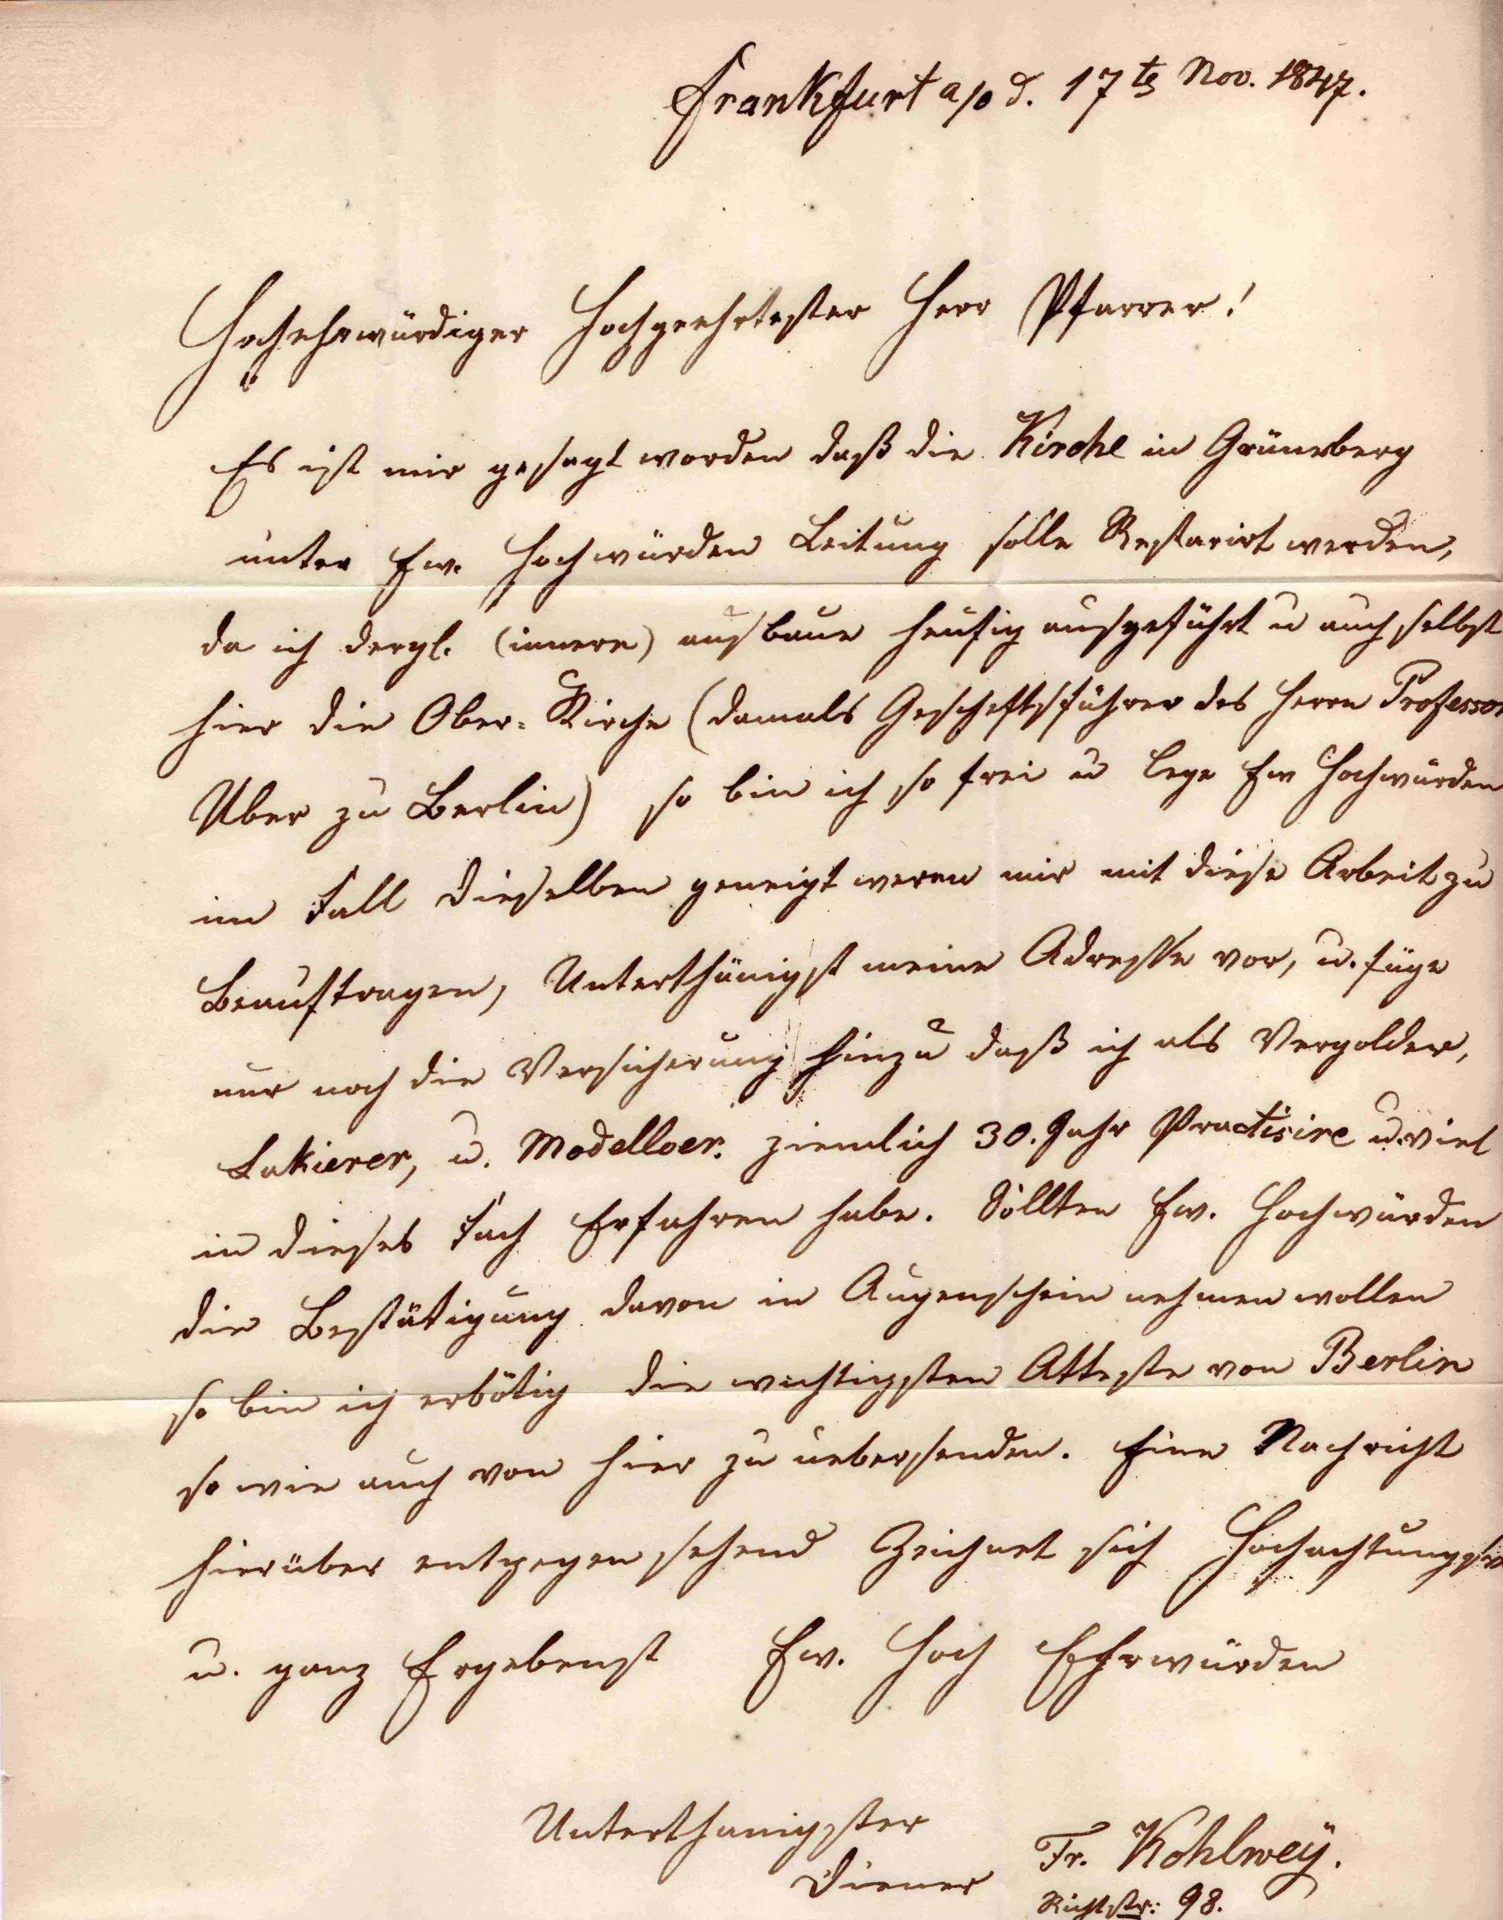 Frankfurt a/o d. 17ts Nov. 1847.
Hochehrwürdiger Hochgeehrtester Herr Pfarrer!
Es ist mir gesagt worden daß die Kirche in Grüneberg
unter Ew. Hochwürden Leitung solle Restarirt werden,
da ich dergl. (innere) ausbaue heufig ausgeführt u auch selbst
hier die Ober-Kirche (damals Gescheftsführer des Herrn Professor
Uber zu Berlin) so bin ich so frei u lege Ew Hochwürden
im Fall Dieselben geneigt weren mir mit diese Arbeit zu
Beauftragen, Unterthänigst meine Adresse vor, u. füge
nur noch die Versicherung hinzu daß ich als Vergolder,
Lakierer, u. Modelloer. ziemlich 30. Jahr Practisire u. viel
in dieses Fach Erfahren habe. Sollten Ew. Hochwürden
die Bestätigung davon in Augenschein nehmen wollen
so bin ich erbötig die wichtigsten Atteste von Berlin
so wie auch von hier zu uebersenden. Eine Nachricht
hierüber entgegen sehend Zeichnet sich Hochachtungsv
u. ganz Ergebenst Ew. Hoch Ehrwürden
Unterthanigster
Diener
Fr. Kohlweÿ.
Richtstr: 98.